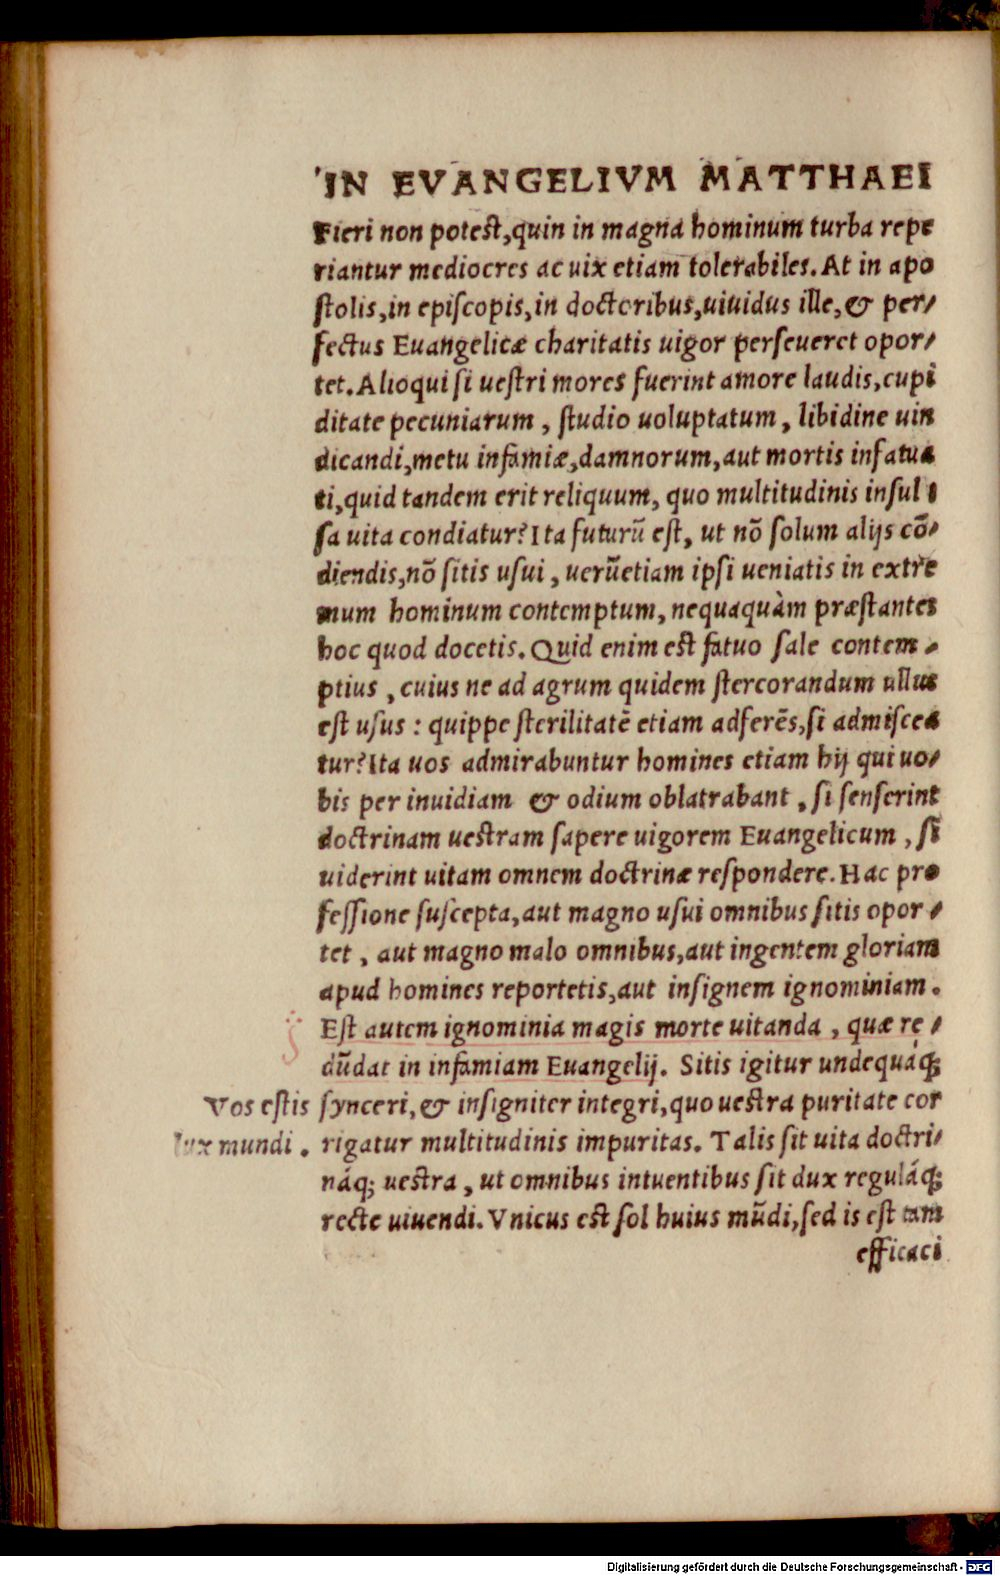 IN EVANGELIVM MATTHAEI
Fieri non potest,quin in magna hominum turba repe
riantur mediocres ac uix etiam tolerabiles. At in apo
ſtolis,in epiſcopis,in doctoribus,uiuidus ille,& per/
fectus Euangelicæ charitatis uigor perſeueret opor/
tet. Alioqui ſi ueſtri mores fuerint amore laudis,cupi
ditate pecuniarum, ſtudio uoluptatum, libidine uin
dicandi,metu infamiæ,damnorum,aut mortis infatua
ti,quid tandem erit reliquum, quo multitudinis inſul
ſa uita condiatur? Ita futurū eſt, ut nō ſolum alijs cō/
diendis,nō ſitis uſui, uerūetiam ipſi ueniatis in extre
mum hominum contemptum, nequaquàm præſtantes
hoc quod docetis. Quid enim est fatuo ſale contem/
ptius, cuius ne ad agrum quidem ſtercorandum ullus
eſt uſus: quippe ſterilitatē etiam adferēs,ſi admiſcea
tur? Ita uos admirabuntur homines etiam hij qui uo/
bis per inuidiam & odium oblatrabant, ſi ſenſerint
doctrinam uestram ſapere uigorem Euangelicum, ſi
uiderint uitam omnem doctrinæ reſpondere. Hac pro
feſſione ſuſcepta,aut magno uſui omnibus ſitis opor/
tet, aut magno malo omnibus,aut ingentem gloriam
apud homines reportetis,aut inſignem ignominiam.
Eſt autem ignominia magis morte uitanda, quæ re/
dūdat in infamiam Euangelij. Sitis igitur undequáq;
Vos eſtis ſynceri,& inſigniter integri,quo uestra puritate cor
lux mundi. rigatur multitudinis impuritas. Talis ſit uita doctri/
náq; uestra, ut omnibus intuentibus ſit dux reguláq;
recte uiuendi. Vnicus est ſol huius mūdi,ſed is eſt tam
efficaci
Digitalisierung gefördert durch die Deutsche Forschungsgemeinschaft - DFG